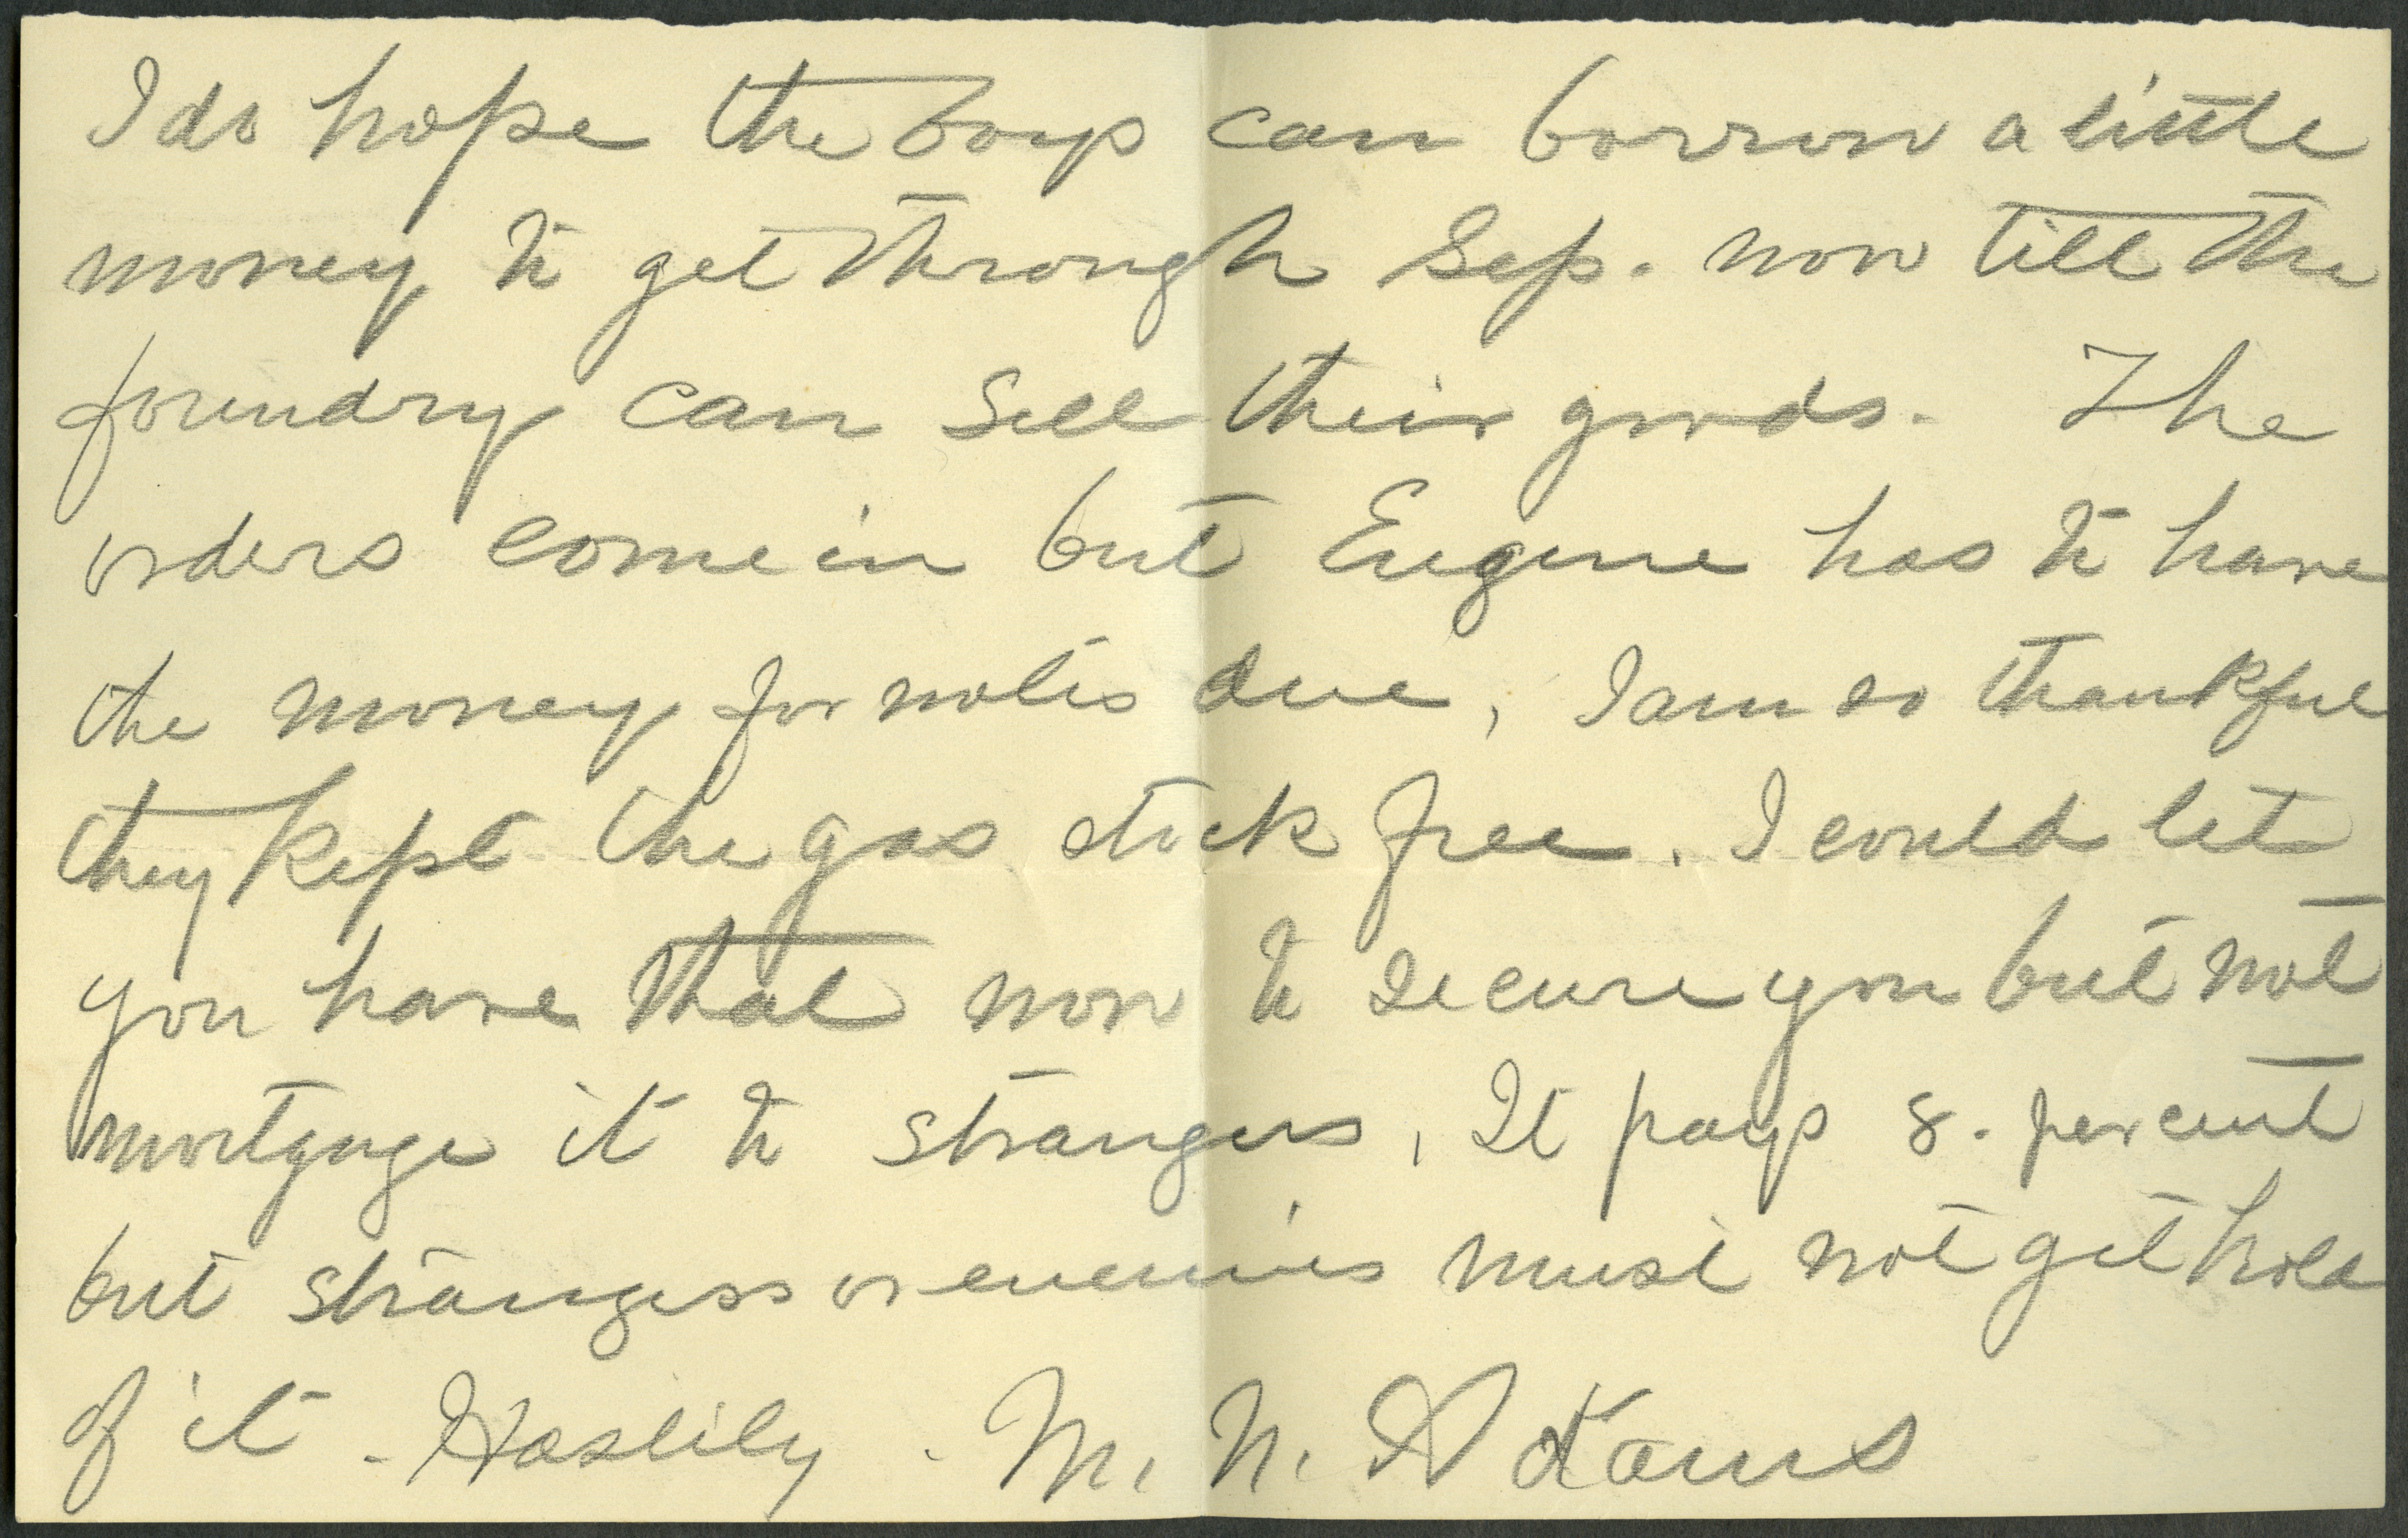 I do hope the boys can borrow a little
money to get through Sep. now till the
foundry can sell their goods. The
orders come in but Eugene has to have
the money for notes due, I am so thankful
they kept the gas stock free. I could let
you have that now to secure you but not
mortgage it to strangers, It pays 8. per cent
but strangers or enemies must not get hold
of it. Hastily. M. N. Adams